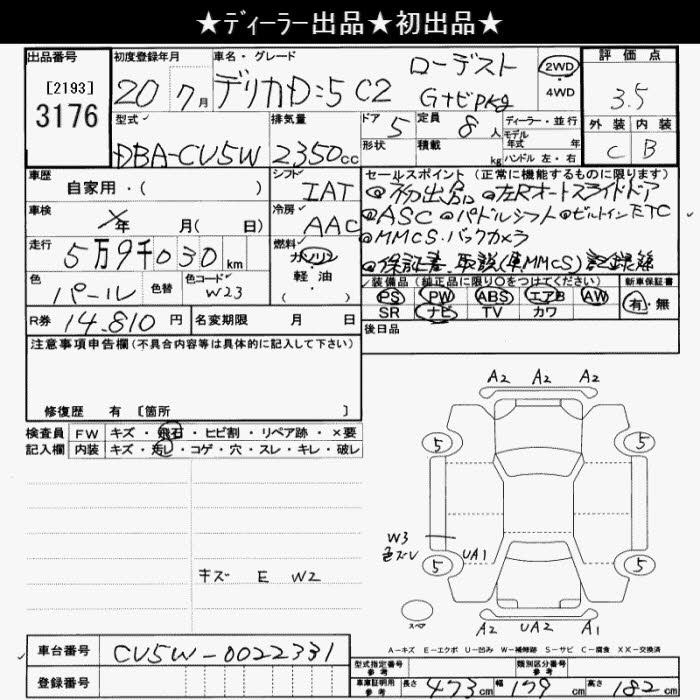 ★ディーラー出品★初出品★
出品番号 初度登録年月 車名・グレード 評価点
[2193]
3176
20 7月 デリカD:5 C2 ローデスト GナビPkg 2WD 4WD 3.5
型式 排気量 ドア 5 定員 8人 ディーラー・並行 外装 内装
DBA-CV5W 2350cc 形状 積載 kg モデル年式 年 ハンドル 左・右 C B
車歴 シフト セールスポイント (正常に機能するものに限ります)
自家用・( ) IAT ◎初出品 ◎左Rオートスライドドア
車検 年 月( 日) 冷房 AAC ◎ASC ◎パドルシフト ◎ビルトインETC
走行 燃料 ◎MMCS・バックカメラ
5万9千030km ガソリン ◎保証書、取説(車、MMCS) 記録簿
色 色替 色コード 軽・油 装備品 (純正品に限り○をつけてください) 新車保証書
パール W23 PS PW ABS エアB AW 有・無
SR ナビ TV カワ
R券 14,810円 名変期限 月 日 後日品
注意事項申告欄(不具合内容等は具体的に記入して下さい)
修復歴 有 [箇所 ]
検査員 FW キズ・飛石・ヒビ割・リペア跡・×要
記入欄 内装 キズ・汚し・コゲ・穴・スレ・キレ・破レ
A2 A2 A2
5 5
W3
色ズレ UA1
5 5
キズ E W2
スペア
A2 UA2 A1
A-キズ E-エクボ U-凹み W-補修跡 S-サビ C-腐食 XX-交換済
車台番号 CV5W-0022331
型式指定番号 参考 類別区分番号 参考
登録番号 車庫証明用 参考 長さ 473cm 幅 178cm 高さ 182cm